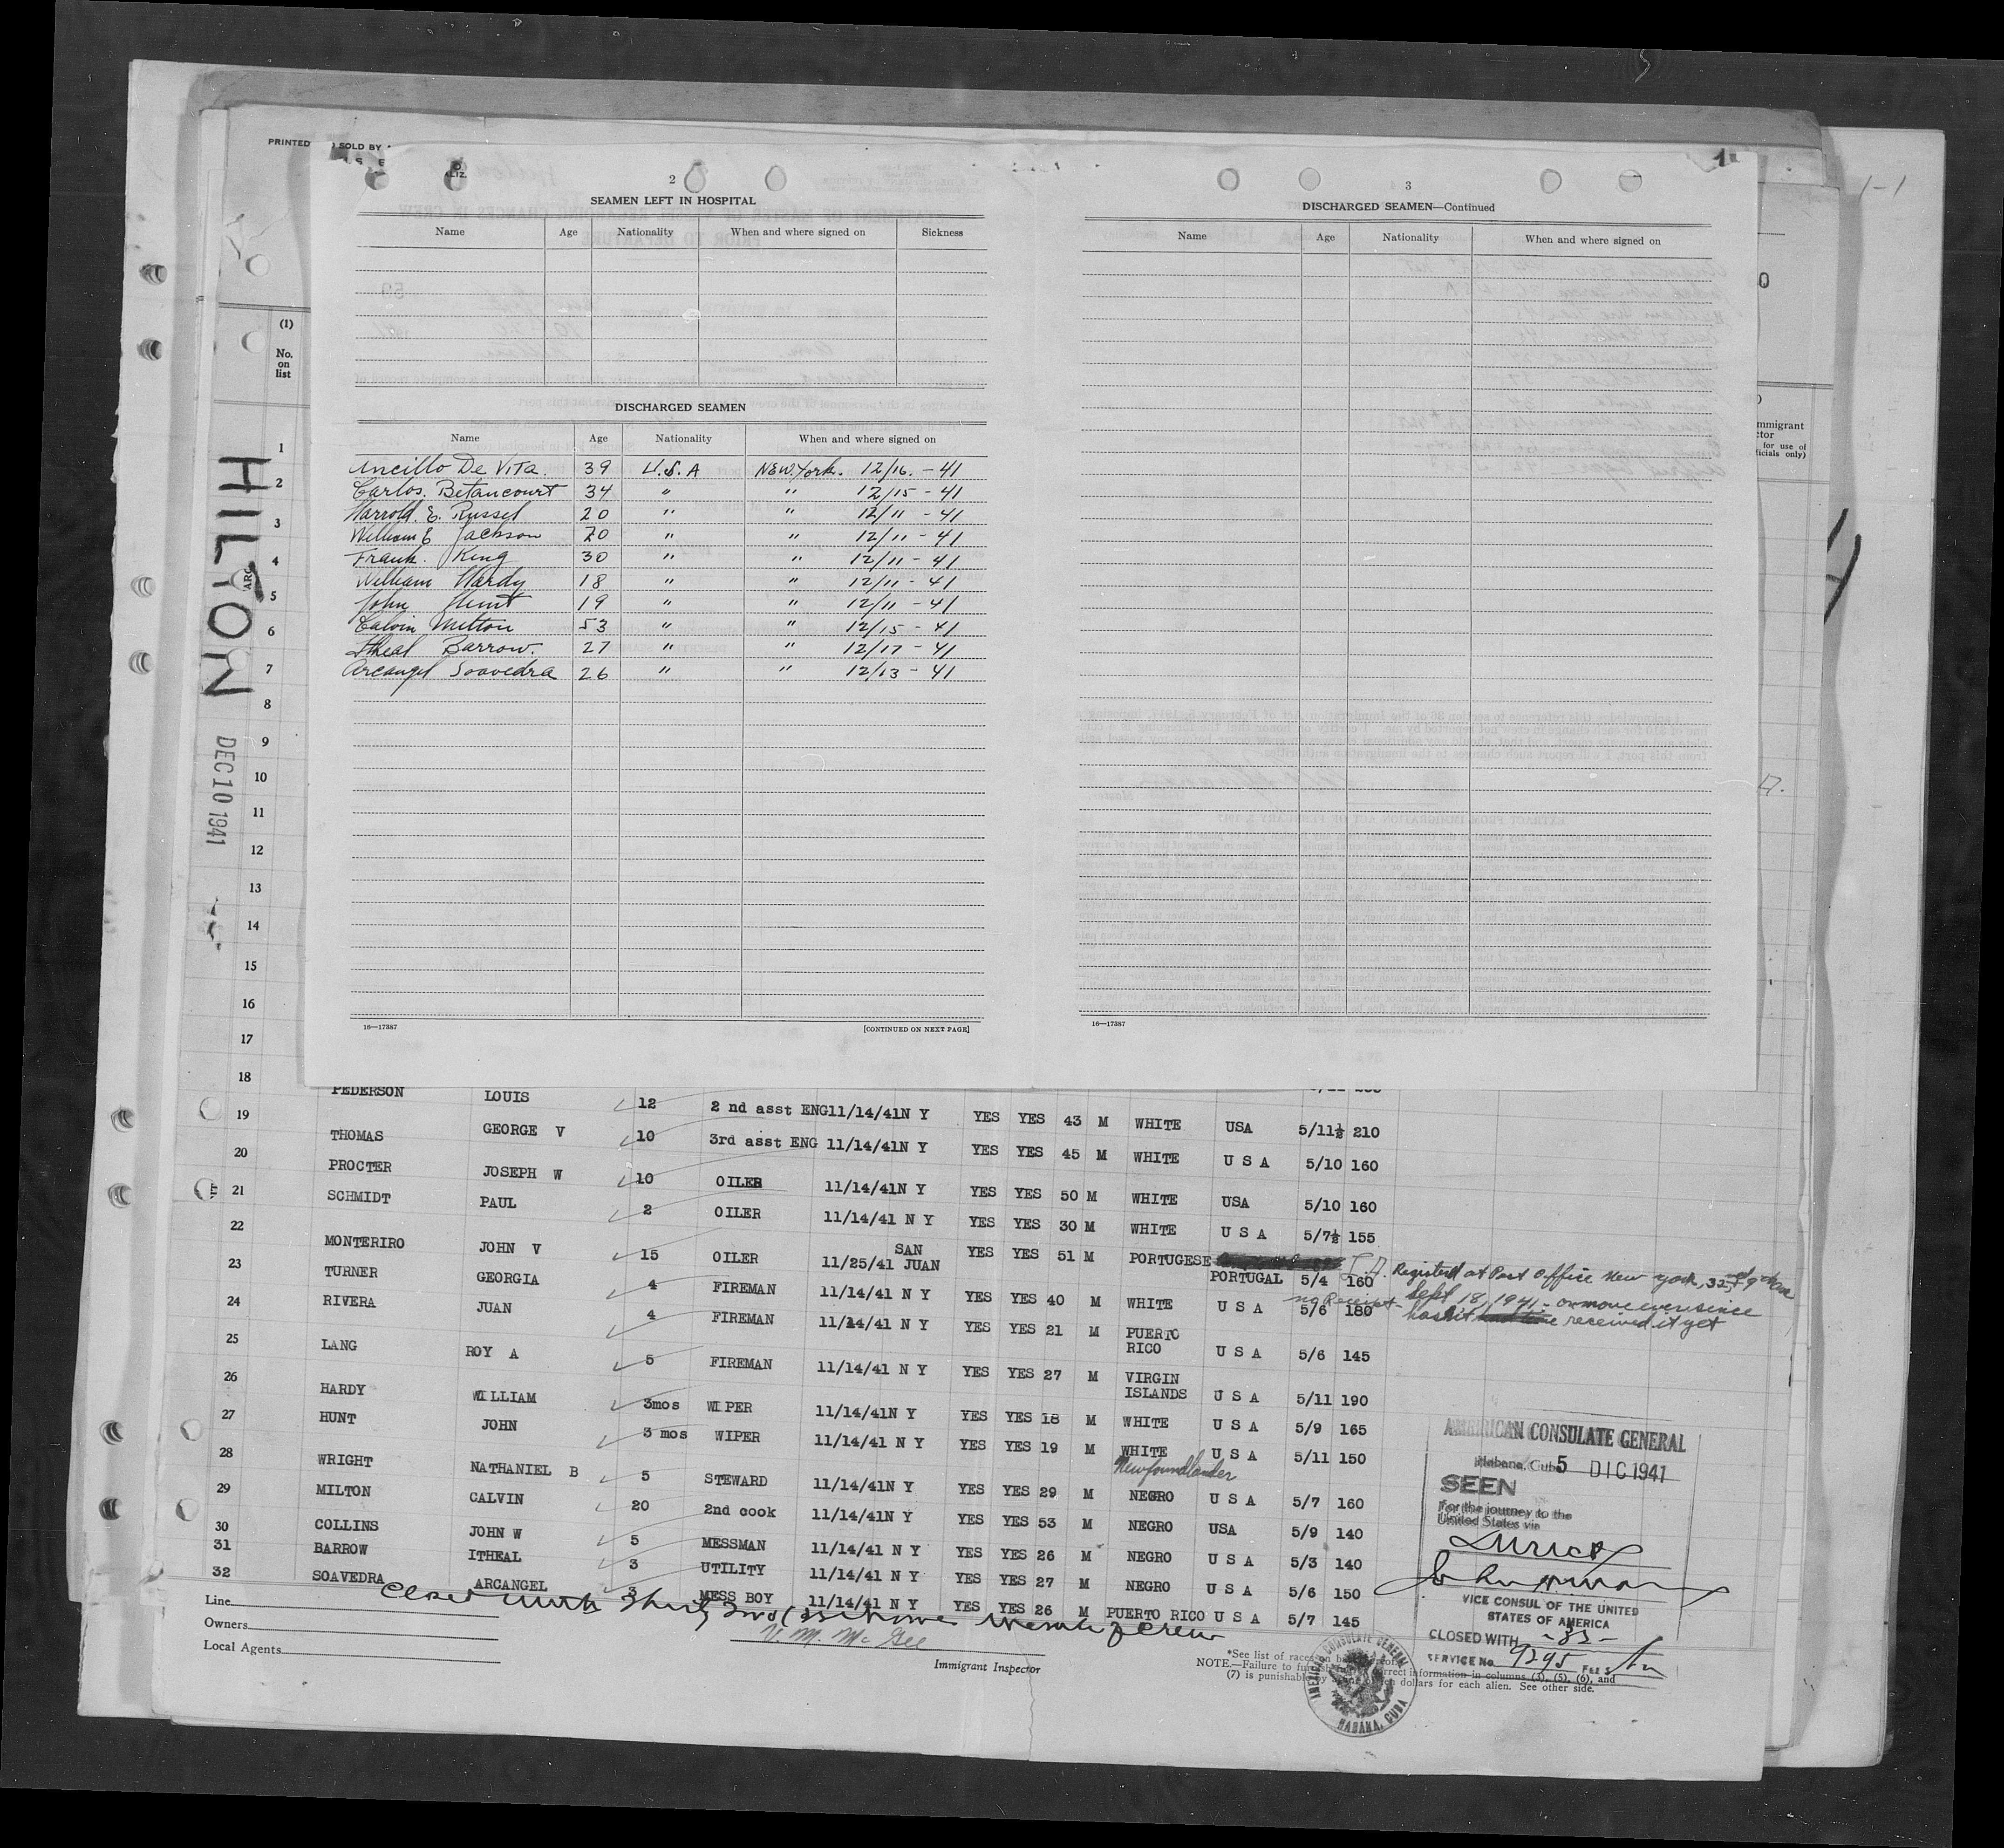 PRINTED
SOLD BY
LIZ.
2
SEAMEN LEFT IN HOSPITAL
Name Age Nationality When and where signed on Sickness
DISCHARGED SEAMEN
Name Age Nationality When and where signed on
Ancillo De Vita. 39 U.S.A New York. 12/16. - 41
Carlos. Betancourt 34 " " 12/15 - 41
Harrold. E. Russel 20 " " 12/11 - 41
William E Jackson 20 " " 12/11 - 41
Frank. King 30 " " 12/11 - 41
William Hardy 18 " " 12/11 - 41
John Hunt 19 " " 12/11 - 41
Calvin Milton 53 " " 12/15 - 41
Itheal Barrow. 27 " " 12/17 - 41
Arcangel Soavedra 26 " " 12/13 - 41
16—17387 [CONTINUED ON NEXT PAGE]
3
DISCHARGED SEAMEN—Continued
Name Age Nationality When and where signed on
16—17387
1-1
(1)
No.
on
list
HILTON
DEC 10 1941
1
2
3
4
5
6
7
8
9
10
11
12
13
14
15
16
17
18
mmigrant
ctor
for use of
ficials only)
PEDERSON LOUIS 12 2 nd asst ENG 11/14/41 N Y YES YES 43 M WHITE USA 5/11½ 210
19 THOMAS GEORGE V 10 3rd asst ENG 11/14/41 N Y YES YES 45 M WHITE U S A 5/10 160
20 PROCTER JOSEPH W 10 OILER 11/14/41 N Y YES YES 50 M WHITE USA 5/10 160
21 SCHMIDT PAUL 2 OILER 11/14/41 N Y YES YES 30 M WHITE U S A 5/7½ 155
22 MONTERIRO JOHN V 15 OILER 11/25/41 SAN JUAN YES YES 51 M PORTUGESE PORTUGAL 5/4 160
Registered at Post Office New York,
no Receipt - Sept 18, 1941 - on move ever since
hasn't received it yet
23 TURNER GEORGIA 4 FIREMAN 11/14/41 N Y YES YES 40 M WHITE U S A 5/6 180
24 RIVERA JUAN 4 FIREMAN 11/14/41 N Y YES YES 21 M PUERTO RICO U S A 5/6 145
25 LANG ROY A 5 FIREMAN 11/14/41 N Y YES YES 27 M VIRGIN ISLANDS U S A 5/11 190
26 HARDY WILLIAM 3mos WIPER 11/14/41 N Y YES YES 18 M WHITE U S A 5/9 165
27 HUNT JOHN 3 mos WIPER 11/14/41 N Y YES YES 19 M WHITE U S A 5/11 150
Newfoundlander
28 WRIGHT NATHANIEL B 5 STEWARD 11/14/41 N Y YES YES 29 M NEGRO U S A 5/7 160
29 MILTON CALVIN 20 2nd cook 11/14/41 N Y YES YES 53 M NEGRO USA 5/9 140
30 COLLINS JOHN W 5 MESSMAN 11/14/41 N Y YES YES 26 M NEGRO U S A 5/3 140
31 BARROW ITHEAL 3 UTILITY 11/14/41 N Y YES YES 27 M NEGRO U S A 5/6 150
32 SOAVEDRA ARCANGEL 3 MESS BOY 11/14/41 N Y YES YES 26 M PUERTO RICO U S A 5/7 145
Closed with Thirty
Line
Owners
Local Agents
V. M. McGee
Immigrant Inspector
AMERICAN CONSULATE GENERAL
Habana, Cuba 5 DIC 1941
SEEN
For the journey to the
United States via
Direct
VICE CONSUL OF THE UNITED
STATES OF AMERICA
CLOSED WITH -33-
SERVICE No. 9295 FEES
AMERICAN CONSULATE GENERAL
HABANA, CUBA
*See list of races on
NOTE.—Failure to correct information in columns (3), (5), (6), and
(7) is punishable by dollars for each alien. See other side.